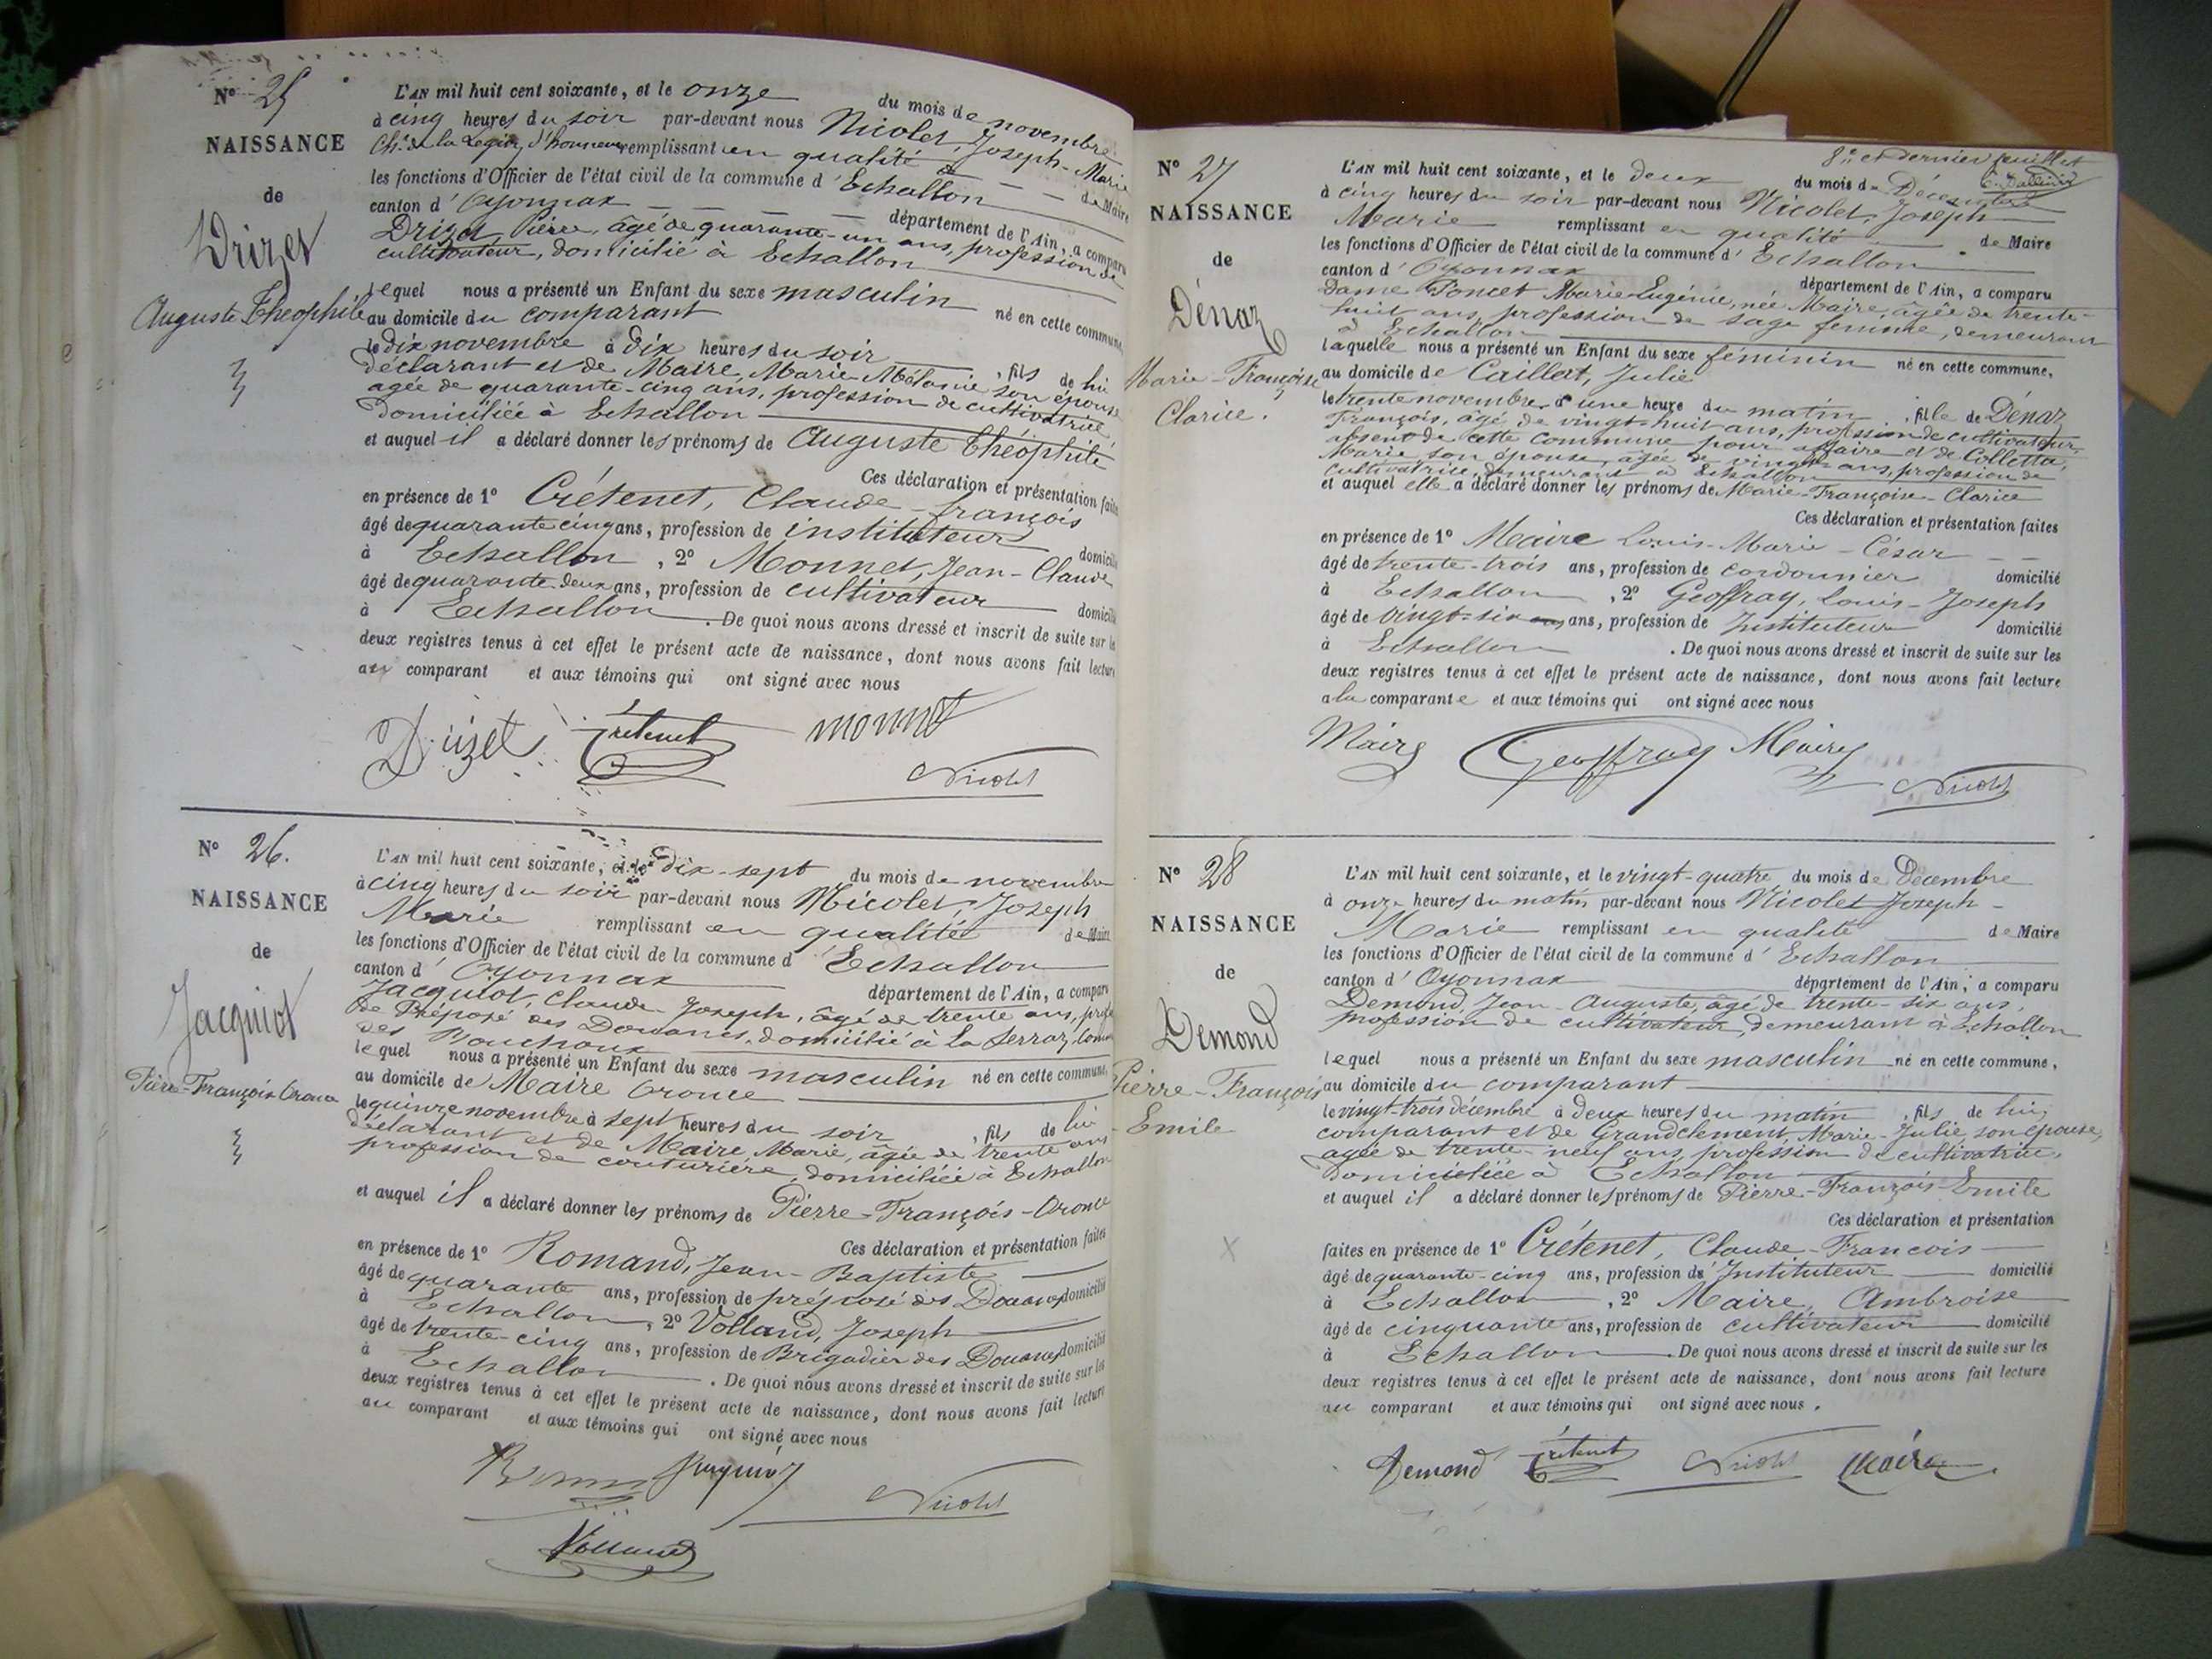 N° 25
NAISSANCE
de
Drizet
Auguste Théophile
L'AN mil huit cent soixante, et le onze du mois de novembre
à cinq heures du soir par-devant nous Nicolet, Joseph-Marie
Ch.er de la Légion d'honneur remplissant en qualité de Maire
les fonctions d'Officier de l'état civil de la commune d'Echallon
canton d'Oyonnax département de l'Ain, a comparu
Drizet Pierre, âgé de quarante-un ans, profession de
cultivateur, domicilié à Echallon
lequel nous a présenté un Enfant du sexe masculin né en cette commune,
au domicile du comparant
le dix novembre à dix heures du soir, fils de lui
déclarant et de Maire, Marie Mélanie son épouse
agée de quarante-cinq ans, profession de cultivatrice,
domiciliée à Echallon
et auquel il a déclaré donner les prénoms de Auguste Théophile
Ces déclaration et présentation faites
en présence de 1° Crétenet, Claude-françois
âgé de quarante cinq ans, profession de instituteur domicilié
à Echallon, 2° Monnet, Jean-Claude
âgé de quarante-deux ans, profession de cultivateur domicilié
à Echallon. De quoi nous avons dressé et inscrit de suite sur les
deux registres tenus à cet effet le présent acte de naissance, dont nous avons fait lecture
au comparant et aux témoins qui ont signé avec nous
Drizet Crétenet monnet
Nicolet
N° 26.
NAISSANCE
de
Jacquiot
Pierre-François Oronce
L'AN mil huit cent soixante, et le dix-sept du mois de novembre
à cinq heures du soir par-devant nous Nicolet, Joseph
Marie remplissant en qualité de Maire
les fonctions d'Officier de l'état civil de la commune d'Echallon
canton d'Oyonnax département de l'Ain, a comparu
Jacquiot, Claude-Joseph, âgé de trente ans, prof
de Préposé des Douanes, domicilié à la Serraz, Comm
des Bouchoux
lequel nous a présenté un Enfant du sexe masculin né en cette commune,
au domicile de Maire Oronce
le quinze novembre à sept heures du soir, fils de lui
déclarant et de Maire Marie, âgée de trente ans
profession de couturière, domiciliée à Echallon
et auquel il a déclaré donner les prénoms de Pierre-François-Oronce
Ces déclaration et présentation faites
en présence de 1° Romand, Jean-Baptiste
âgé de quarante ans, profession de préposé des Douanes domicilié
à Echallon, 2° Volland, Joseph
âgé de trente-cinq ans, profession de Brigadier des Douanes domicilié
à Echallon. De quoi nous avons dressé et inscrit de suite sur les
deux registres tenus à cet effet le présent acte de naissance, dont nous avons fait lecture
au comparant et aux témoins qui ont signé avec nous
Jacquiot
Nicolet
Volland
8e et dernier feuillet
N° 27
NAISSANCE
de
Dénaz
Marie-Françoise
Clarice.
L'AN mil huit cent soixante, et le deux du mois de Décembre
à cinq heures du soir par-devant nous Nicolet, Joseph
Marie remplissant en qualité de Maire
les fonctions d'Officier de l'état civil de la commune d'Echallon
canton d'Oyonnax département de l'Ain, a comparu
dame Poncet Marie-Eugénie, née Maire, âgée de trente-
huit ans, profession de sage femme, demeurant
à Echallon
laquelle nous a présenté un Enfant du sexe féminin né en cette commune,
au domicile de Caillat, Julie
le trente novembre à une heure du matin, fille de Dénaz
François, âgé de vingt-huit ans, profession de cultivateur,
absent de cette commune pour affaire et de Colletta,
Marie son épouse, âgée de vingt ans, profession de
cultivatrice, demeurant à Echallon
et auquel elle a déclaré donner les prénoms de Marie-Françoise-Clarice
Ces déclaration et présentation faites
en présence de 1° Maire Louis-Marie-César
âgé de trente-trois ans, profession de cordonnier domicilié
à Echallon, 2° Geoffray, Louis-Joseph
âgé de vingt-six ans, profession de Instituteur domicilié
à Echallon. De quoi nous avons dressé et inscrit de suite sur les
deux registres tenus à cet effet le présent acte de naissance, dont nous avons fait lecture
a la comparante et aux témoins qui ont signé avec nous
Maire Geoffray Maire
Nicolet
N° 28
NAISSANCE
de
Demond
Pierre-François
Emile
L'AN mil huit cent soixante, et le vingt-quatre du mois de Décembre
à onze heures du matin par-devant nous Nicolet Joseph-
Marie remplissant en qualité de Maire
les fonctions d'Officier de l'état civil de la commune d'Echallon
canton d'Oyonnax département de l'Ain, a comparu
Demond, Jean-Auguste, âgé de trente-six ans,
profession de cultivateur, demeurant à Echallon
lequel nous a présenté un Enfant du sexe masculin né en cette commune,
au domicile du comparant
le vingt-trois décembre à deux heures du matin, fils de lui,
comparant et de Grandclément, Marie-Julie, son épouse,
agée de trente-neuf ans, profession de cultivatrice,
domiciliée à Echallon
et auquel il a déclaré donner les prénoms de Pierre-François-Emile
Ces déclaration et présentation
faites en présence de 1° Crétenet, Claude-François
âgé de quarante-cinq ans, profession de Instituteur domicilié
à Echallon, 2° Maire, Ambroise
âgé de cinquante ans, profession de cultivateur domicilié
à Echallon. De quoi nous avons dressé et inscrit de suite sur les
deux registres tenus à cet effet le présent acte de naissance, dont nous avons fait lecture
au comparant et aux témoins qui ont signé avec nous.
Demond Crétenet Nicolet Maire